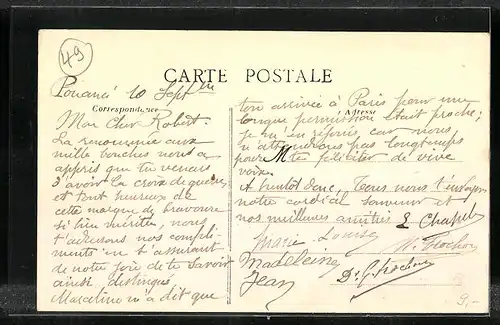 49
CARTE POSTALE
Correspondance
Adresse
Pouancé 10 Sept
Mon Cher Robert.
La renommée aux
mille bouches nous a
appris que tu venais
d'avoir la croix de guerre,
et tout heureux de
cette marque de bravoure
si bien méritée, nous
t'adressons nos compli-
ments en t'assurant
de notre joie de te savoir
ainsi distingué
Marceline m'a dit que
ton arrivée à Paris pour une
longue permission était proche;
je m'en réjouis, car nous
n'attendrons pas longtemps
pour te féliciter de vive
voix.
A bientôt donc, Tous nous t'envoyons
notre cordial souvenir et
nos meilleures amitiés E Chapel
Marie-Louise
Madeleine
Jean
9,-